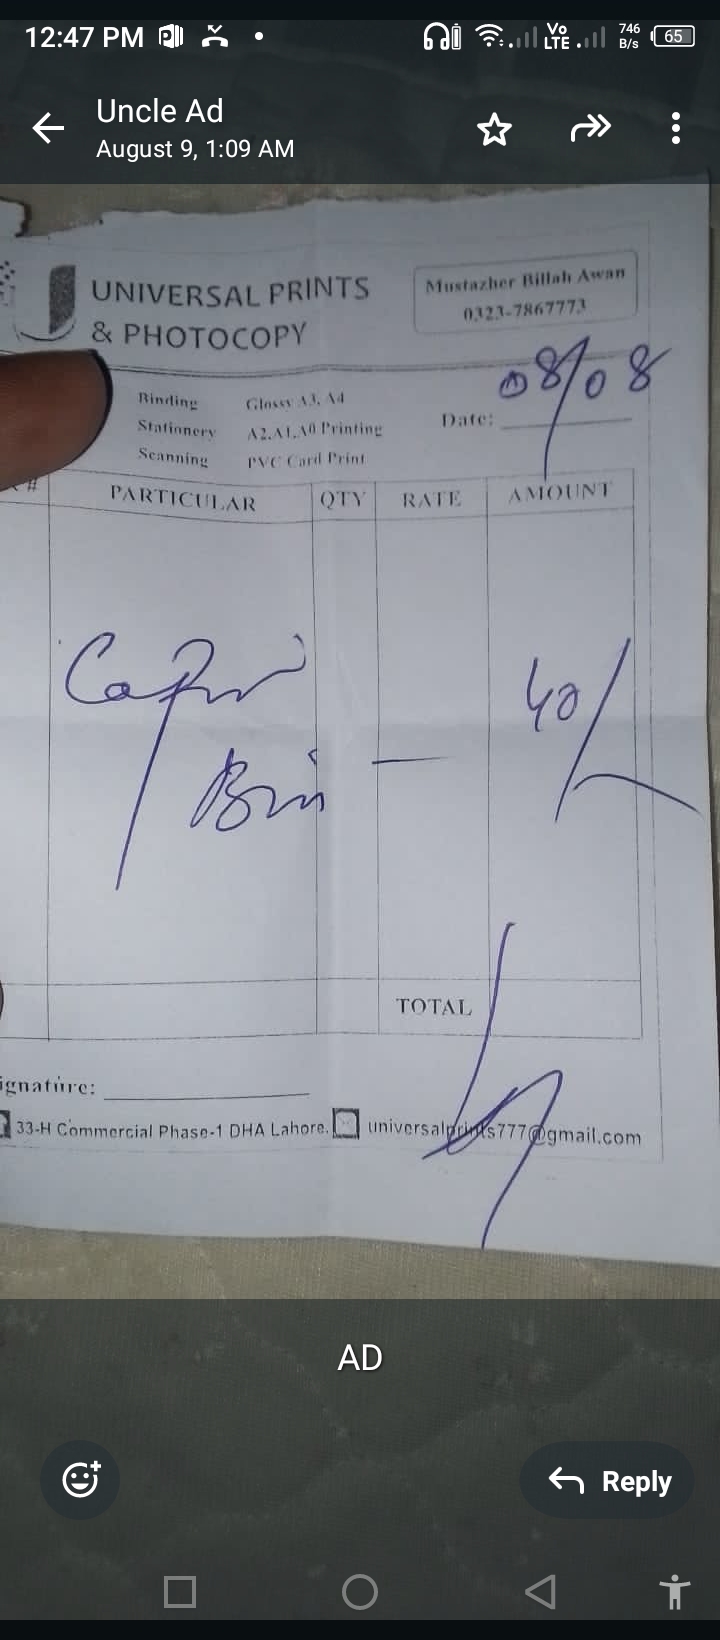 12:47 PM
Vo LTE 746 B/s 65
Uncle Ad
August 9, 1:09 AM
UNIVERSAL PRINTS
& PHOTOCOPY
Mustazher Billah Awan
0323-7867773
Binding Glossy A3, A4
Stationery A2,A1,A0 Printing
Scanning PVC Card Print
Date: 08/08
# PARTICULAR QTY RATE AMOUNT
40/
TOTAL
ignature:
33-H Commercial Phase-1 DHA Lahore.
universalprints777@gmail.com
AD
Reply